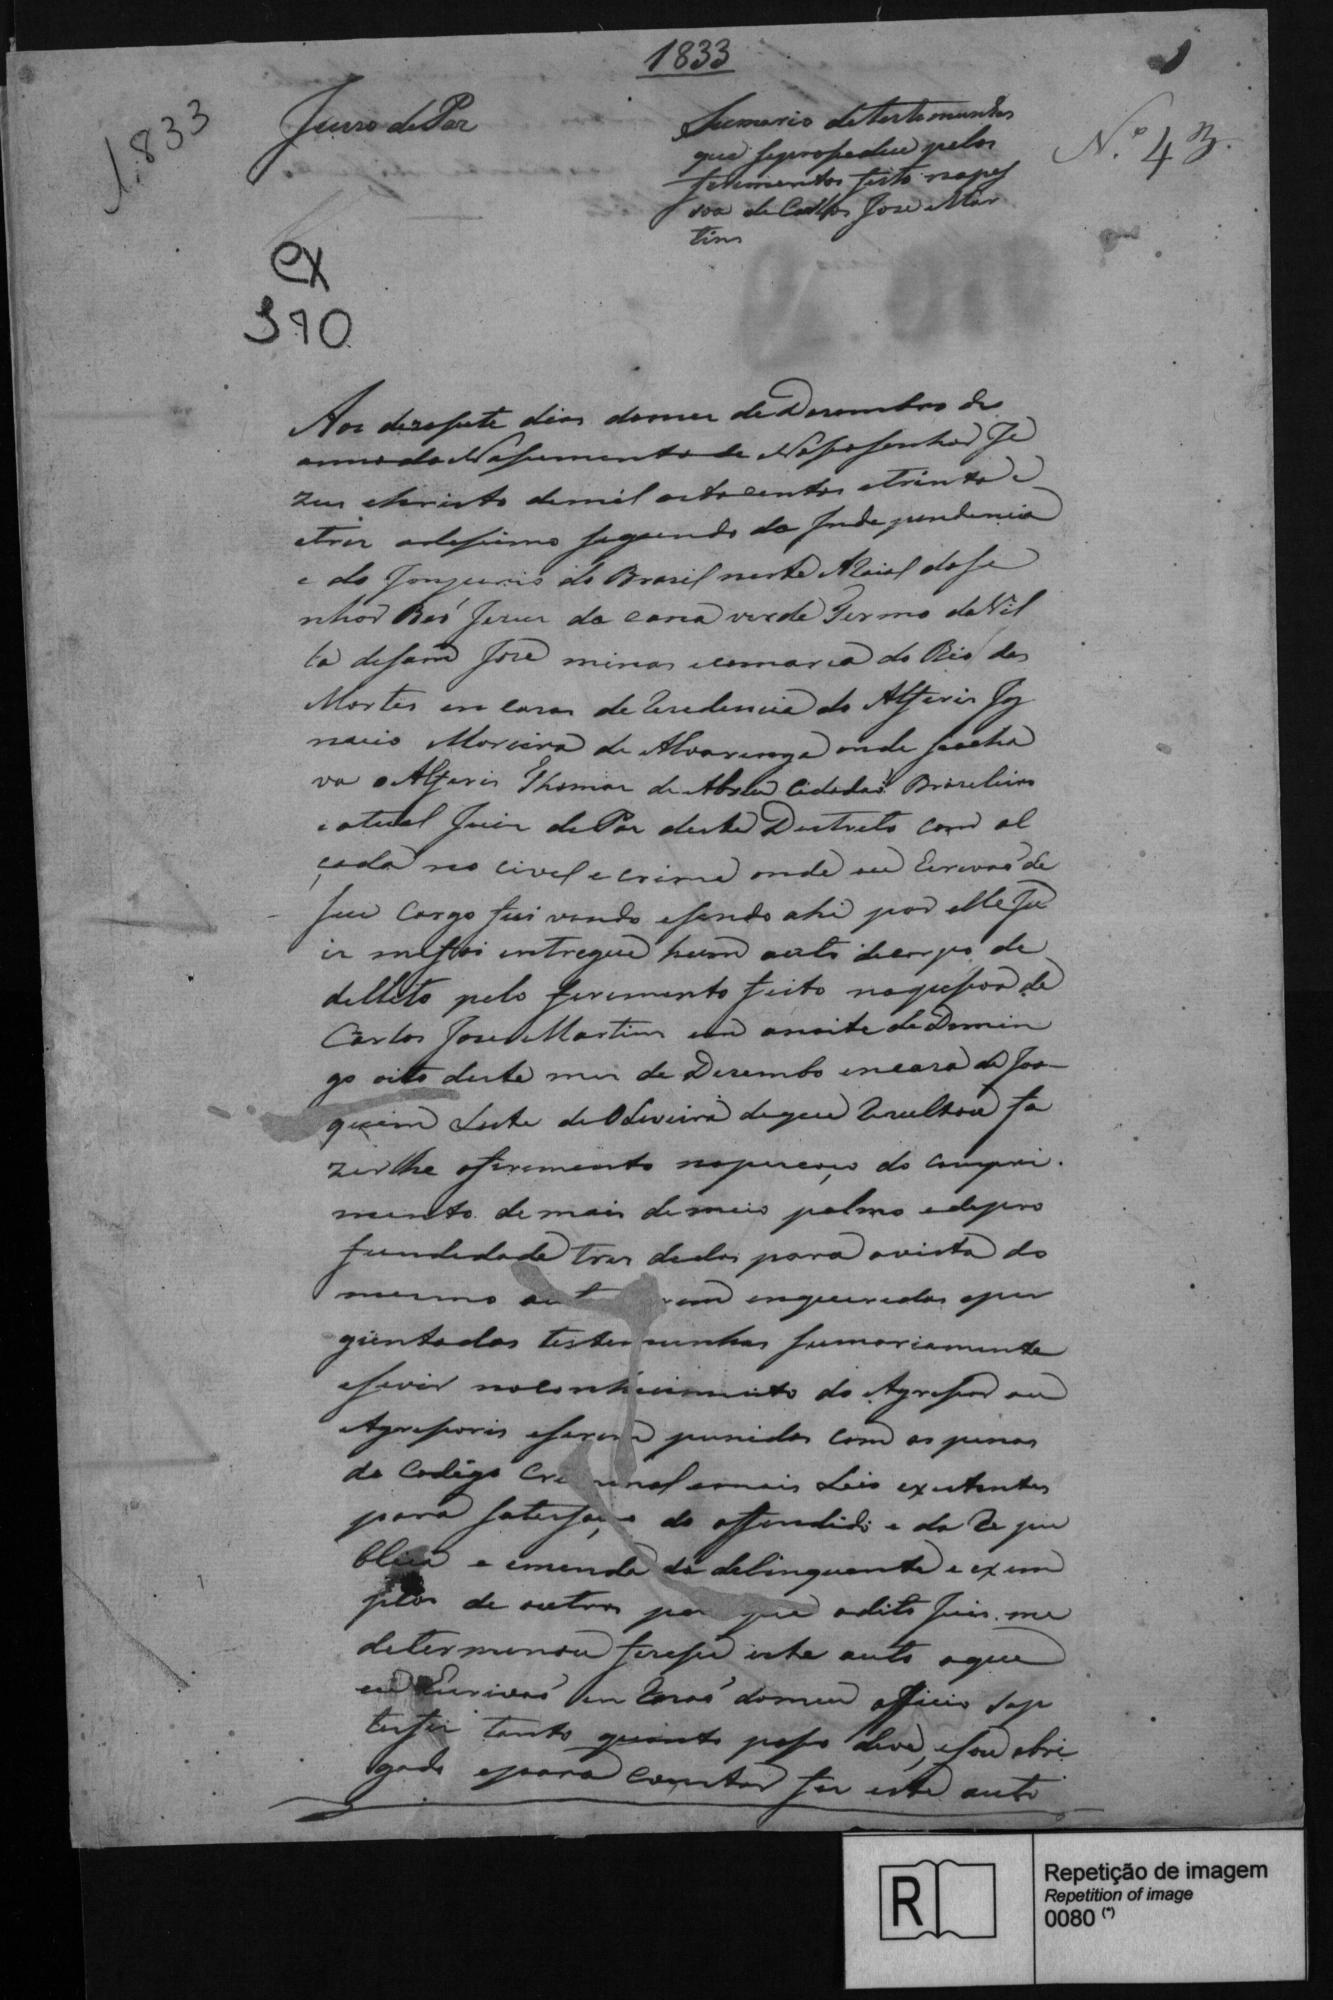 1833
1833
Juizo de Paz
Sumario de testemunhas
que se procedeu pelos
ferimentos feito napes
soa de Carlos Jose Mar
tins
N.º 4
ex
390
Aos dezasete dias domes de Dezembro do
anno do Nassimento de Nosso senhor Je
zus Christo demil oitocentos etrinta e
etres odesimo segundo da Independencia
e do Imperio do Brazil neste Araial dose
nhor Bõ Jezus da cana verde Termo da Vil
la desam Joze minas ecomarca do Rio das
Mortes em casas de Rezedencia do Alferis Ig
nacio Moreira de Alvarenga onde seacha
va o Alferis Thomaz de Abreu Cidadaõ Brazileiro
e atual Juiz de Paz deste Destrito com al
çada no civel e crime onde eu Escrivaõ de
seu cargo fui vindo esendo ahi por elle Ju
iz mefoi entregue hum auto decorpo de
dellito pelo ferimento feito napessoa de
Carlos Joze Martins em anoite de Domin
go oito deste mes de Dezembo emcaza de Joa-
quim Leite de Oliveira deque Rezultou fa
zerlhe oferimento nopescoço do compri
mento de mais demeio palmo edepro
fundidade tres dedos para avista do
mesmo enqueridas eper
guntadas testemunhas sumariamente
esevir noconhecimento do Agressor ou
Agressoris eserem punidos com as penas
do Codigo Criminal emais Leis existentes
para satisfação do offendido e da Re pu
blica e emenda do delinquente e exem
plos de outros por que odito Juis me
determinou fizesse este auto oque
eu Escrivaõ em Rezaõ domeu officio sap
tisfis tanto quanto posso devo, esou obri
gado epara constar fiz este auto
Repetição de imagem
Repetition of image
0080 (*)
R